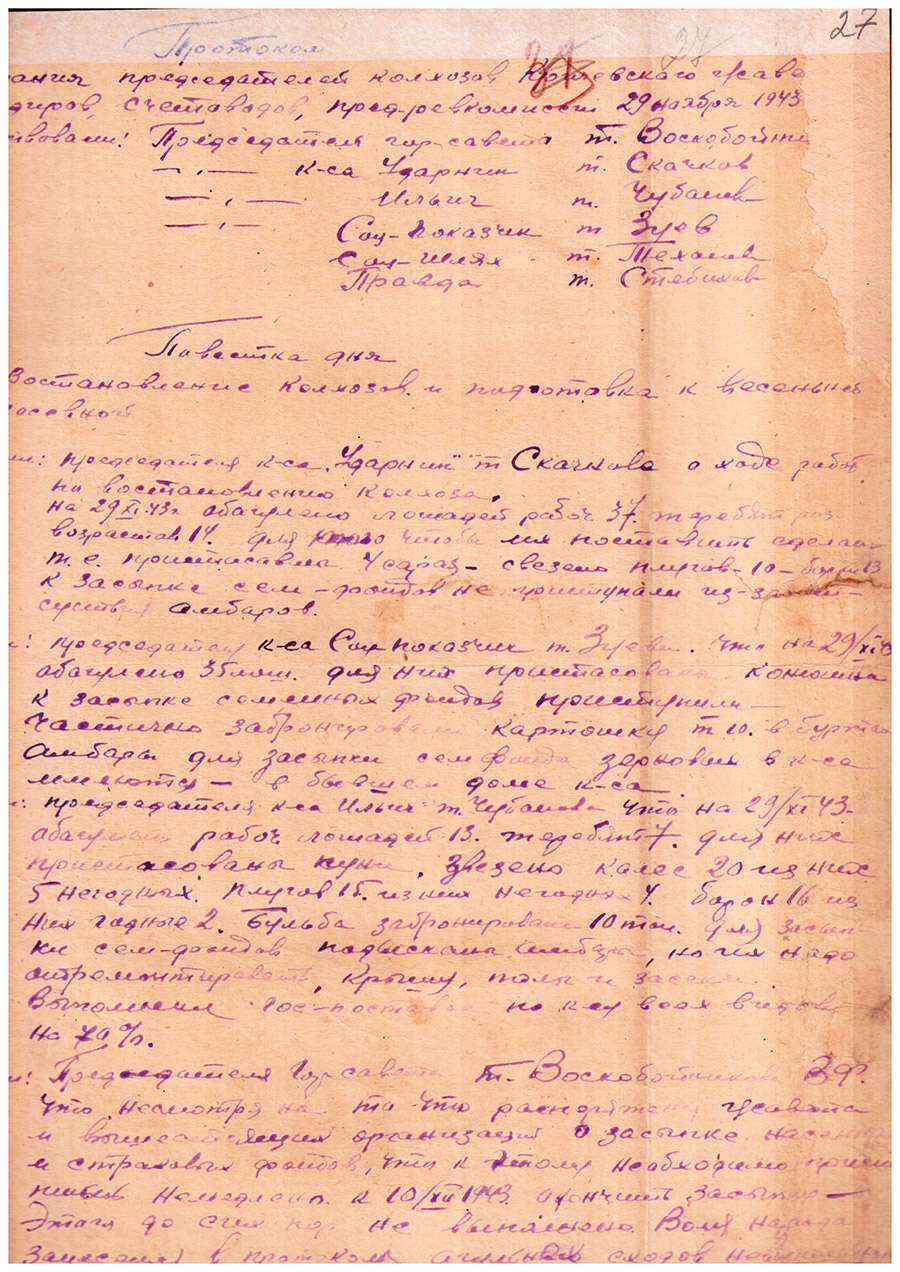 27
Протокол
31 27
ания председателей колхозов Кричевского г/саве
диров, счетоводов, пред-ревкомиссий 29 ноября 1943
ствовали: Председатель гор-савета т. Воскобойни
— " — к-са Ударник т. Скачков
— " — Ильич т. Чубанов
— " — Соц-показчик т Зуев
Соц-Шлях т.
Правда т.
Повестка дня
Востановление колхозов и подготовка к весенней
осевной
ли: председателя к-са "Ударник" т Скачкова о ходе работ
по востановлению колхоза,
на 29/XI-43г. рабоч 37. жеребят раз.
возрастов 14. для чтобы их поставить сделали
т.е. 4 сараз- свезено плугов-10- борон 13
к засыпке сем-фондов не приступали из-за
сутствия амбаров.
и: председатель к-са Соц показчик т. Зуева. что на 29/XI
35 лош. для них конюшня
к засыпке семенных фондов приступили—
частично картошку т 10. в буртах
Амбары для засыпки семфонда зерновых в к-са
имеются— в бывшем доме к-са
и: председателя к-са Ильич т. Чубанова что на 29/XI 43-
рабоч лошадей 13. жеребят 7. для них
пуни, звезено калес 20 из них
5 негодных. плугов 15. из них негодных 4. борон 16 из
них годные 2. Бульба забронирована 10 тон. Для засып
ки сем-фондов подысканы амбары, но их надо
отремонтировать, крышу, полы и засеки
Выполнили гос-постав по к-су всех видов
на 70%.
и: Председателя Гор савета т. Воскобойникова ЗФ.
что несмотря на то что г/савета
и вышестоящих организаций о засыпке
и страховых фондов, что к этому необходимо
немедлено. к 10/XII 1943 окончить засыпку—
Этага до сих пор не выполнено. Воля народа
в протоколы сходов